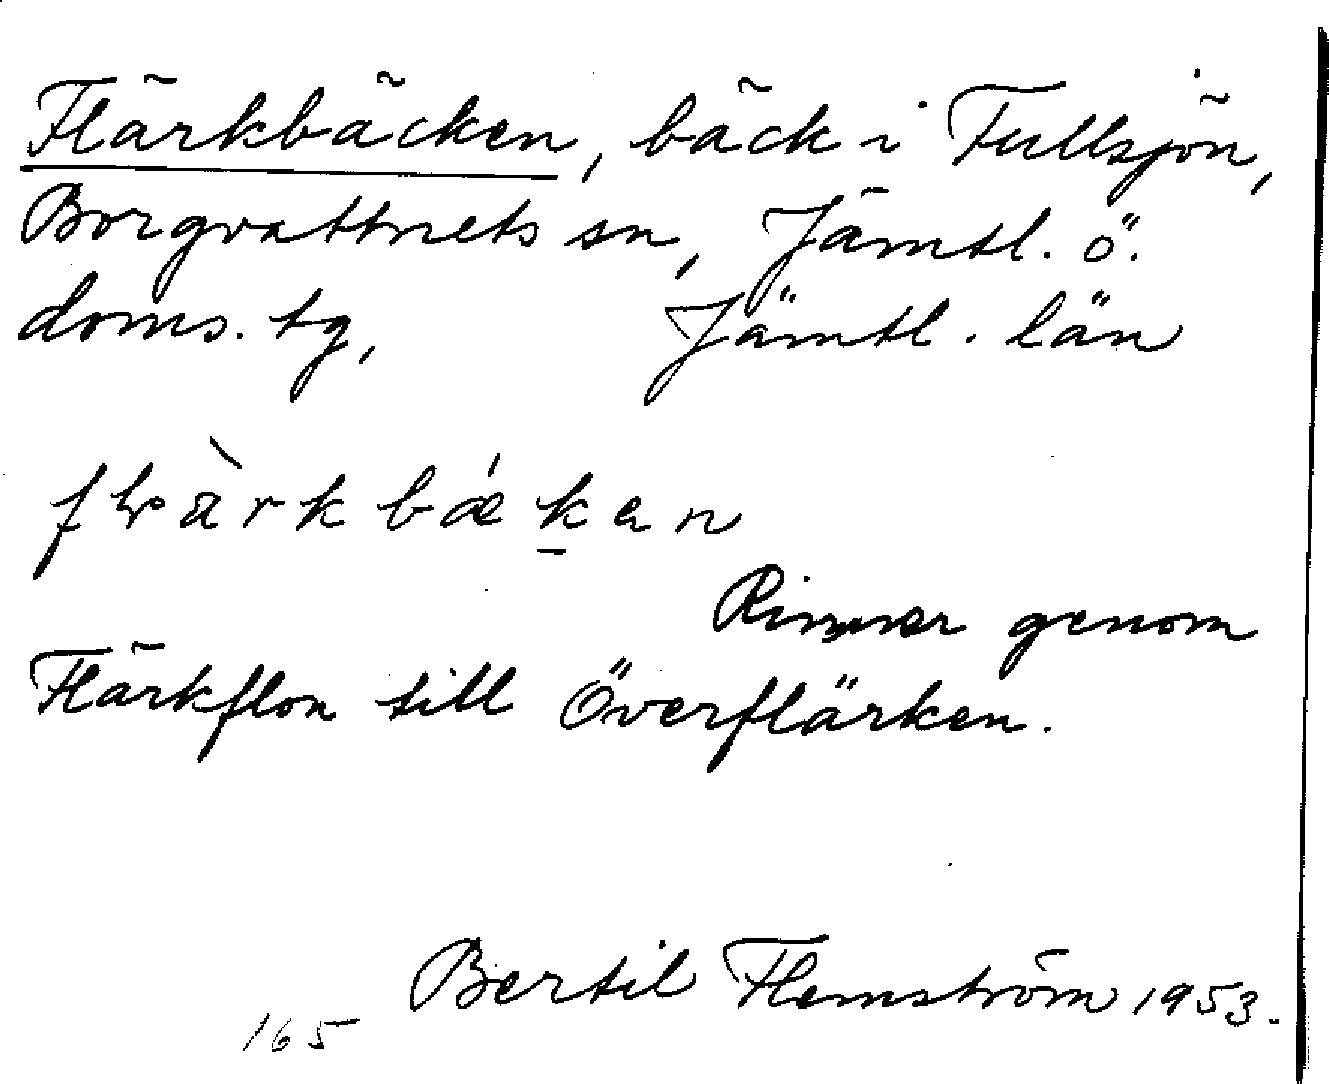 Flärkbäcken, bäck i Fullsjön,
Borgvattnets sn, Jämtl. ö.
doms. tg, Jämtl. län
Rinner genom
Flärkflon till Överflärken.
Bertil Flemström 1953.
165